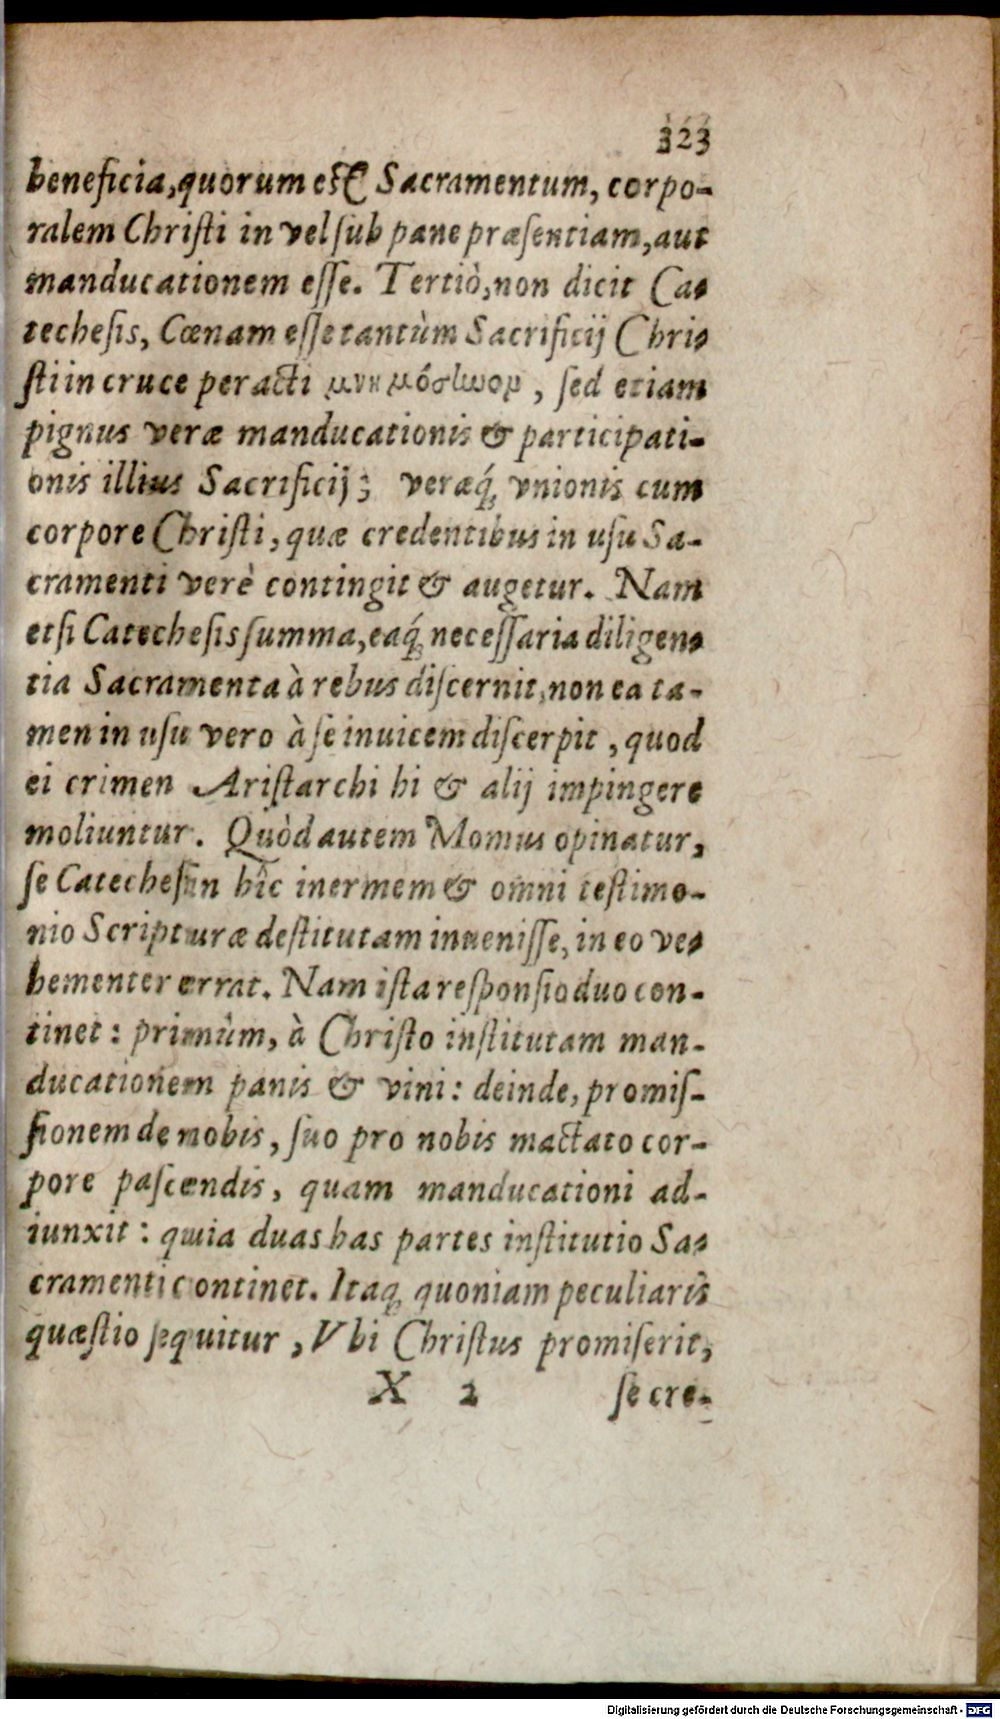 323
beneficia, quorum est Sacramentum, corpo-
ralem Christi in vel sub pane præsentiam, aut
manducationem esse. Tertiò, non dicit Ca-
techesis, Cœnam esse tantùm Sacrificij Chri-
sti in cruce peracti μνημόσυνον, sed etiam
pignus veræ manducationis & participati-
onis illius Sacrificij; veræq́; vnionis cum
corpore Christi, quæ credentibus in usu Sa-
cramenti verè contingit & augetur. Nam
etsi Catechesis summa, eaq́; necessaria diligen-
tia Sacramenta à rebus discernit, non ea ta-
men in usu vero à se inuicem discerpit, quod
ei crimen Aristarchi hi & alij impingere
moliuntur. Quòd autem Momus opinatur,
se Catechesin hîc inermem & omni testimo-
nio Scripturæ destitutam inuenisse, in eo ve-
hementer errat. Nam ista responsio duo con-
tinet: primùm, à Christo institutam man-
ducationem panis & vini: deinde, promis-
sionem de nobis, suo pro nobis mactato cor-
pore pascendis, quam manducationi ad-
iunxit: quia duas has partes institutio Sa-
cramenti continet. Itaq; quoniam peculiaris
quæstio sequitur, Vbi Christus promiserit,
X 2 se cre-
Digitalisierung gefördert durch die Deutsche Forschungsgemeinschaft - DFG